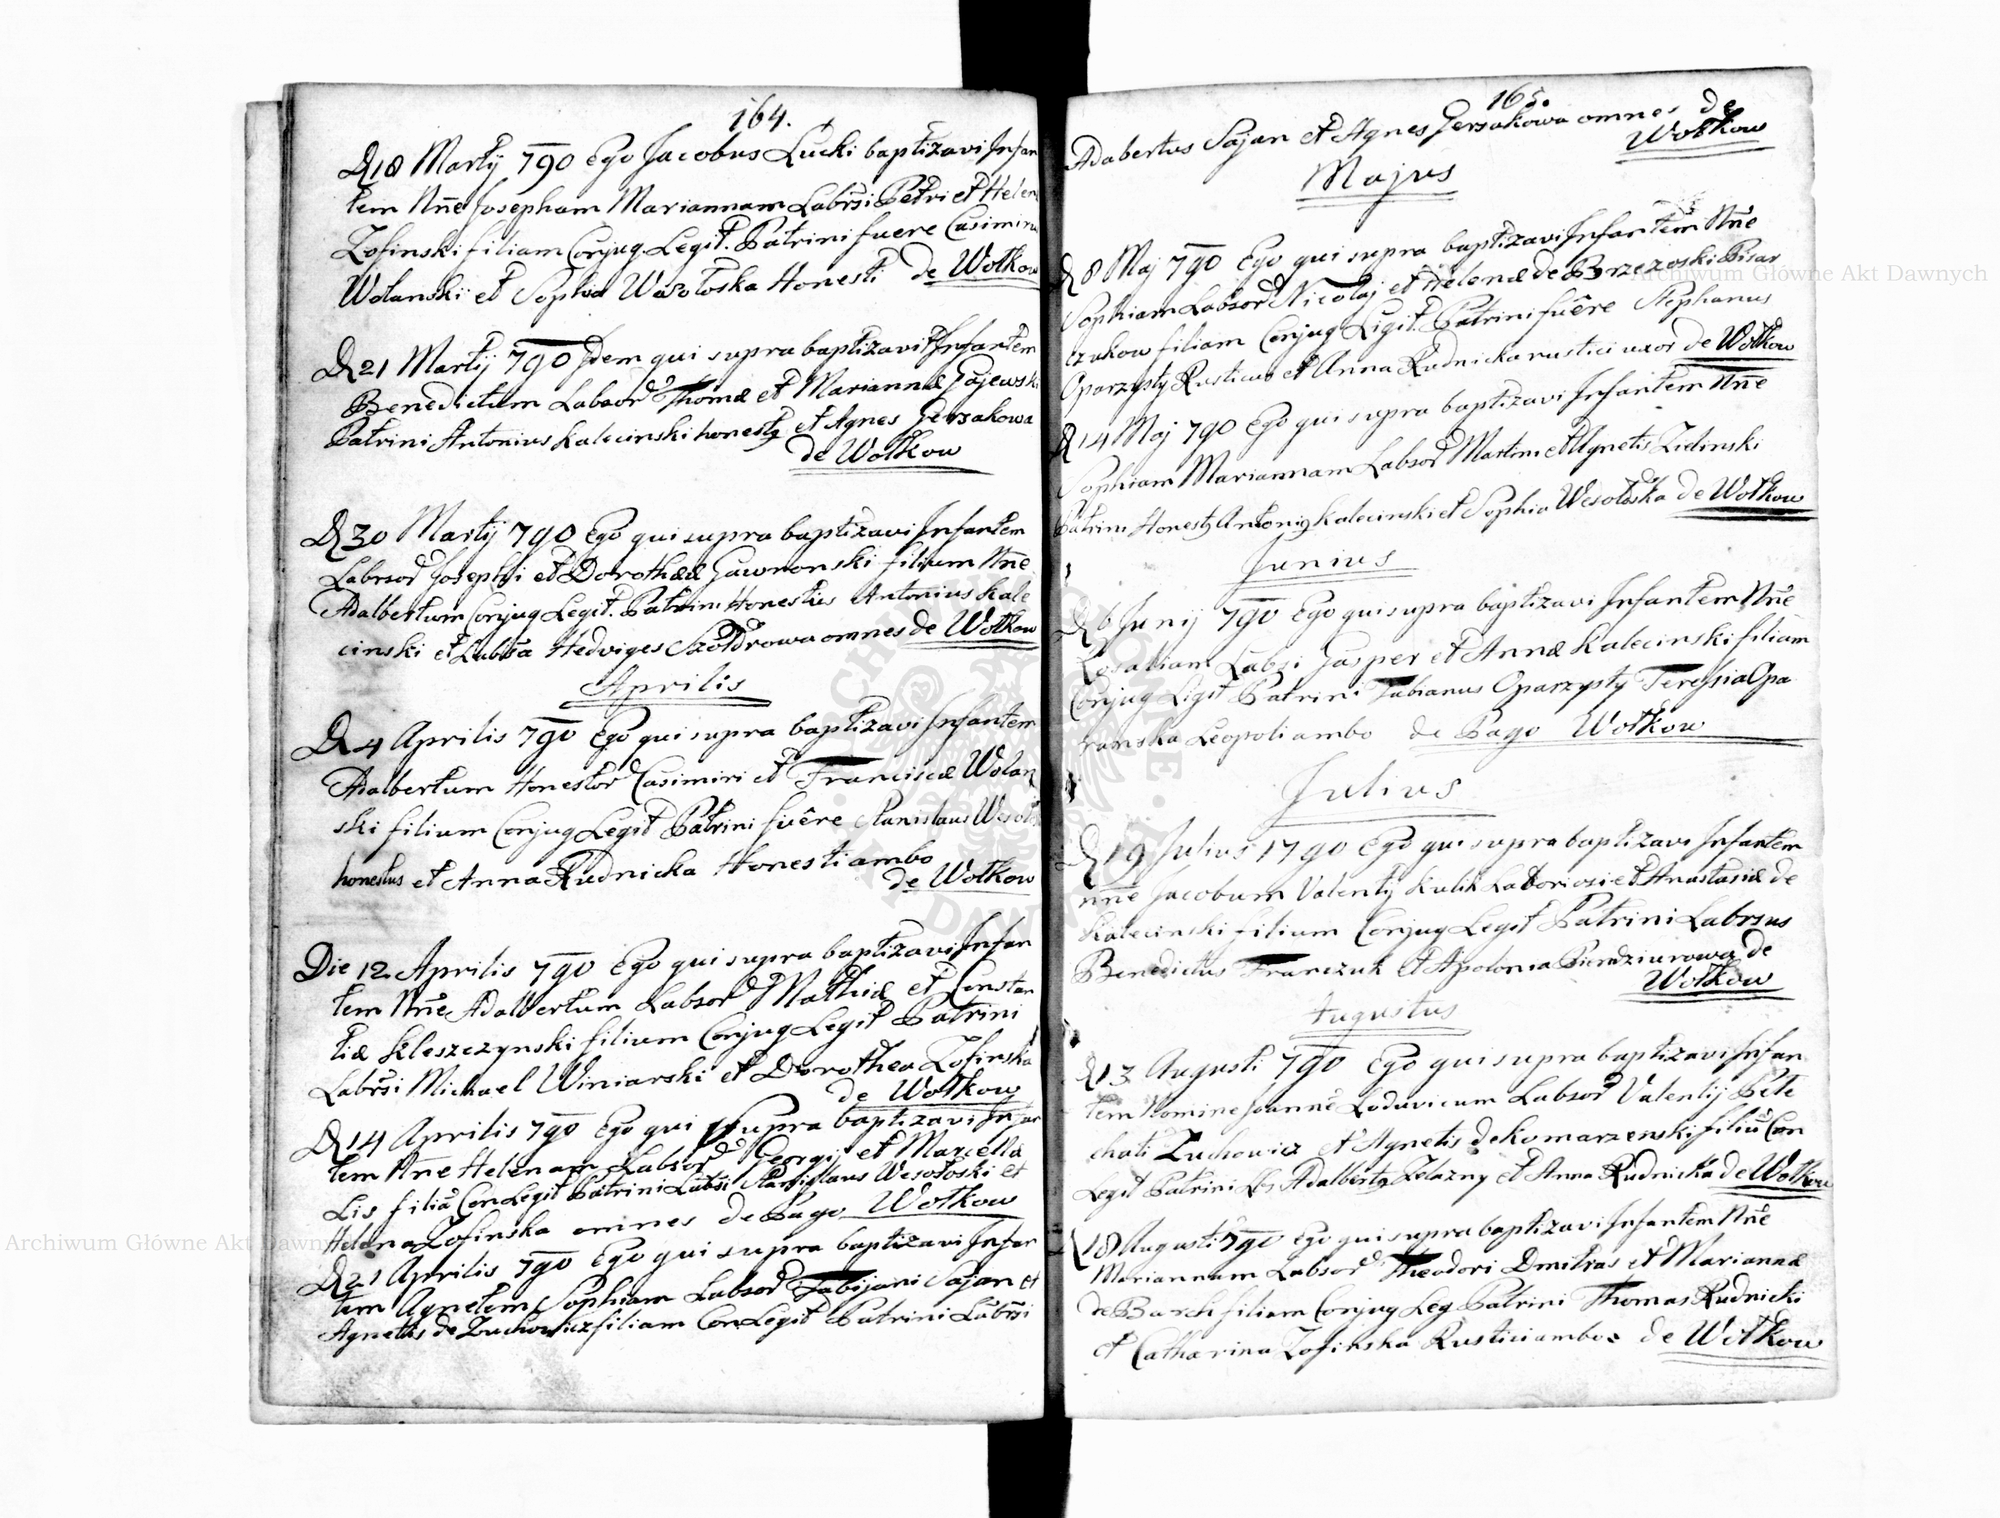 164.
D 18 Martij 790 Ego Jacobus Łucki baptizavi Infan
tem Nñe Josepham Mariannam Labrsi Petri et Helen
Zofinski filiam Conjug Legit. Patrini fuere Casimirus
Wolanski et Sophia Wesołoska Honesti de Wołkow
D 21 Martij 790 Idem qui supra baptizavit Infantem
Benedictum Labsor Thomæ et Mariannæ Gajewski
Patrini Antonius Kalecinski honesty et Agnes Gerzakowa
de Wołkow
D 30 Martij 790 Ego qui supra baptizavi Infantem
Labrsor Josephi et Dorothææ Gawronski filium Nñe
Adalbertum Conjug Legit. Patrini Honestus Antonius Kale
cinski et Labsa Hedviges Szołdrowa omnes de Wołkow
Aprilis
D 4 Aprilis 790 Ego qui supra baptizavi Infantem
Adalbertum Honestor Casimiri et Franciscæ Wolan
ski filium Conjug Legit Patrini fuêre Stanislaus Wesoło
honestus et Anna Rudnicka Honesti ambo
de Wołkow
Die 12 Aprilis 790 Ego qui supra baptizavi Infan
tem Nñe Adalbertum Labsor Mathiæ et Constan
tiæ Kleszczynski filium Conjug Legit Patrini
Labrsi Michael Winiarski et Dorothea Zofinska
de Wołkow
D 14 Aprilis 790 Ego qui supra baptizavi Infan
tem Nñe Helenam Labsor Georgij et Marcella
Lis filiã Con Legit Patrini Labsi Stanislaus Wesołoski et
Helena Zofinska omnes de Pago Wołkow
D 21 Aprilis 790 Ego qui supra baptizavi Infan
tem Agnetem Sophiam Labsor Fabijani Sajan et
Agnetis de Zuchowicz filiam Con Legit Patrini Labrsi
165.
Adabertus Sajan et Agnes Gerzakowa omnes de
Wołkow
Majus
D 8 Maj 790 Ego qui supra baptizavi Infantem Nñe
Sophiam Labsor Nicolaj et Helenæ de Brzezoski Pisar
czukow filiam Conjug Ligit. Patrini fuêre Stephanus
Oparzysty Rusticus et Anna Rudnicka rustici uxor de Wołkow
D 14 Maj 790 Ego qui supra baptizavi Infantem Nñe
Sophiam Mariannam Labsor Martini et Agnetis Zielinski
Patrini Honesty Antonig Kalecinski et Sophia Wesołoska de Wołkow
Junius
D 6 Junij 790 Ego qui supra baptizavi Infantem Nñe
Rosaliam Labzi Gasper et Annæ Kalecinski filiam
Conjug Ligit Patrini Fabianus Oparzysty Teressia Opa
ramska Leopoli ambo de Pago Wołkow
Julius
D 19 Julius 1790 Ego qui supra baptizavi Infantem
nñe Jacobum Valentij Kulik Laboriosi et Anastasiæ de
Kalecinski filium Conjug Legit Patrini Labrsus
Benedictus Franczuk et Apolonia Pierdziurowa de
Wołkow
Augustus
D 13 Augusti 790 Ego qui supra baptizavi Infan
tem Nomine Joannẽ Lodovicum Labsor Valentij Pete
chati Zuchowicz et Agnetis de Komarzenski filiũ Con
Legit Patrini Lbs Adalberty Zelazny et Anna Rudnicka de Wołkow
18 Augusti 790 Ego qui supra baptizavi Infantem Nñe
Mariannam Labsor Theodori Dmitras et Mariannæ
de Barch filiam Conjug Leg Patrini Thomas Rudnicki
et Catharina Zofinska Rustici ambo de Wołkow
Archiwum Główne Akt Dawnych
Archiwum Główne Akt Dawnych